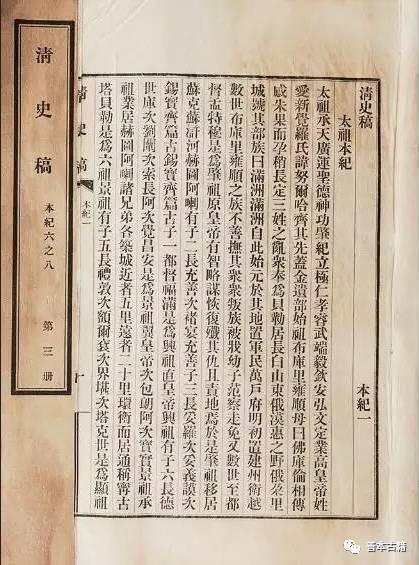 清史稿
太祖本紀
本紀一
太祖承天廣運聖德神功肇紀立極仁孝睿武端毅欽安弘文定業高皇帝姓
愛新覺羅氏諱努爾哈齊其先蓋金遺部始祖布庫里雍順母曰佛庫倫相傳
感朱果而孕稍長定三姓之亂衆奉爲貝勒居長白山東俄漠惠之野俄朶里
城號其部族曰滿洲滿洲自此始元於其地置軍民萬戶府明初置建州衛越
數世布庫里雍順之族不善撫其衆衆叛族被戕幼子范察走免又數世至都
督孟特穆是爲肇祖原皇帝有智略謀恢復殲其仇且責地焉於是肇祖移居
蘇克蘇滸河赫圖阿喇有子二長充善次褚宴充善子三長妥羅次妥義謨次
錫寶齊篇古錫寶齊篇古子一都督福滿是爲興祖直皇帝興祖有子六長德
世庫次劉闡次索長阿次覺昌安是爲景祖翼皇帝次包朗阿次寶實景祖承
祖業居赫圖阿喇諸兄弟各築城近者五里遠者二十里環衛而居通稱寧古
塔貝勒是爲六祖景祖有子五長禮敦次額爾袞次界堪次塔克世是爲顯祖
清史稿
本紀一
清史稿
本紀六之八
第三册
善本古籍